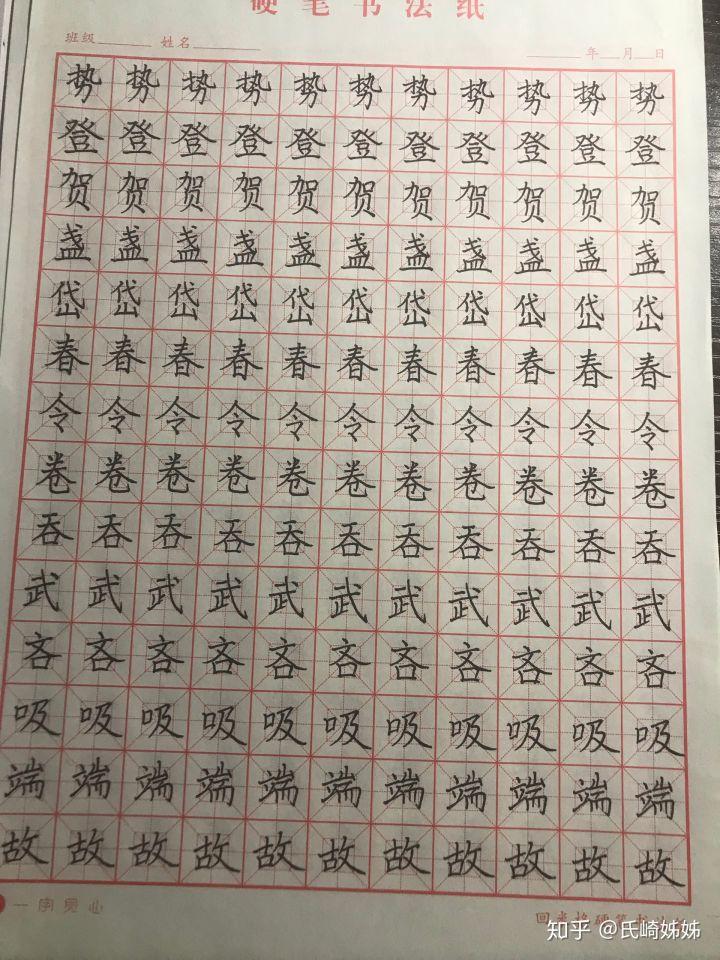 硬笔书法纸
班级 姓名 年 月 日
势 势 势 势 势 势 势 势 势 势 势
登 登 登 登 登 登 登 登 登 登 登
贺 贺 贺 贺 贺 贺 贺 贺 贺 贺 贺
盏 盏 盏 盏 盏 盏 盏 盏 盏 盏 盏
岱 岱 岱 岱 岱 岱 岱 岱 岱 岱 岱
春 春 春 春 春 春 春 春 春 春 春
令 令 令 令 令 令 令 令 令 令 令
卷 卷 卷 卷 卷 卷 卷 卷 卷 卷 卷
吞 吞 吞 吞 吞 吞 吞 吞 吞 吞 吞
武 武 武 武 武 武 武 武 武 武 武
吝 吝 吝 吝 吝 吝 吝 吝 吝 吝 吝
吸 吸 吸 吸 吸 吸 吸 吸 吸 吸 吸
端 端 端 端 端 端 端 端 端 端 端
故 故 故 故 故 故 故 故 故 故 故
回米格硬笔书
知乎 @氏崎姊姊